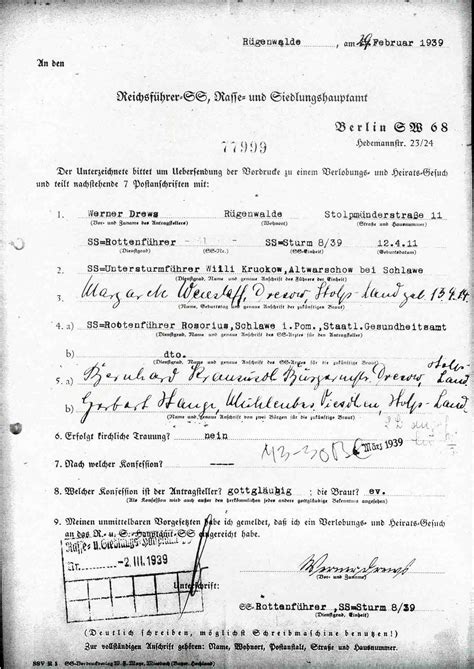 Rügenwalde , am 24. Februar 1939
An den
Reichsführer-SS, Rasse- und Siedlungshauptamt
Berlin SW 68
Hedemannstr. 23/24
77999
Der Unterzeichnete bittet um Uebersendung der Vordrucke zu einem Verlobungs- und Heirats-Gesuch
und teilt nachstehende 7 Postanschriften mit:
1. Werner Drews Rügenwalde Stolpmünderstraße 11
(Vor- und Zuname des Antragstellers) (Wohnort) (Straße und Hausnummer)
SS=Rottenführer SS=Sturm 8/39 12.4.11
(Dienstgrad) (SS-Nr.) (SS-Einheit) (Geburtsdatum)
2. SS=Untersturmführer Willi Kruckow, Altwarschow bei Schlawe
(Dienstgrad, Name und genaue Anschrift des Führers der Einheit)
3. Dresow, Stolp-Land geb. 13.9.14
(Name, Geburtstag und genaue Anschrift der zukünftigen Braut)
4. a) SS=Rottenführer Rosorius, Schlawe i.Pom., Staatl.Gesundheitsamt
(Dienstgrad, Name und genaue Anschrift des SS-Arztes für den Antragsteller)
b) dto.
(Dienstgrad, Name und genaue Anschrift des SS-Arztes für die zukünftige Braut)
5. a) Bernhard Dresow Stolp-Land
b) Stolp-Land
(Name und genaue Anschrift von zwei Bürgen für die zukünftige Braut)
6. Erfolgt kirchliche Trauung? nein
März 1939
7. Nach welcher Konfession?
8. Welcher Konfession ist der Antragsteller? gottgläubig die Braut? ev.
(Als Konfession wird auch außer den herkömmlichen jedes andere gottgläubige Bekenntnis angesehen)
9. Meinen unmittelbaren Vorgesetzten habe ich gemeldet, daß ich ein Verlobungs- und Heirats-Gesuch
an das R.- u. S.-Hauptamt-SS eingereicht habe.
Rasse- u. Siedlungs-Hauptamt SS
Nr. -2.III.1939
Werner Drews
(Vor- und Zuname)
Unterschrift:
SS=Rottenführer, SS=Sturm 8/39
(Dienstgrad und SS-Einheit)
(Deutlich schreiben, möglichst Schreibmaschine benutzen!)
Zur vollständigen Anschrift gehören: Name, Wohnort, Postanstalt, Straße und Hausnummer.